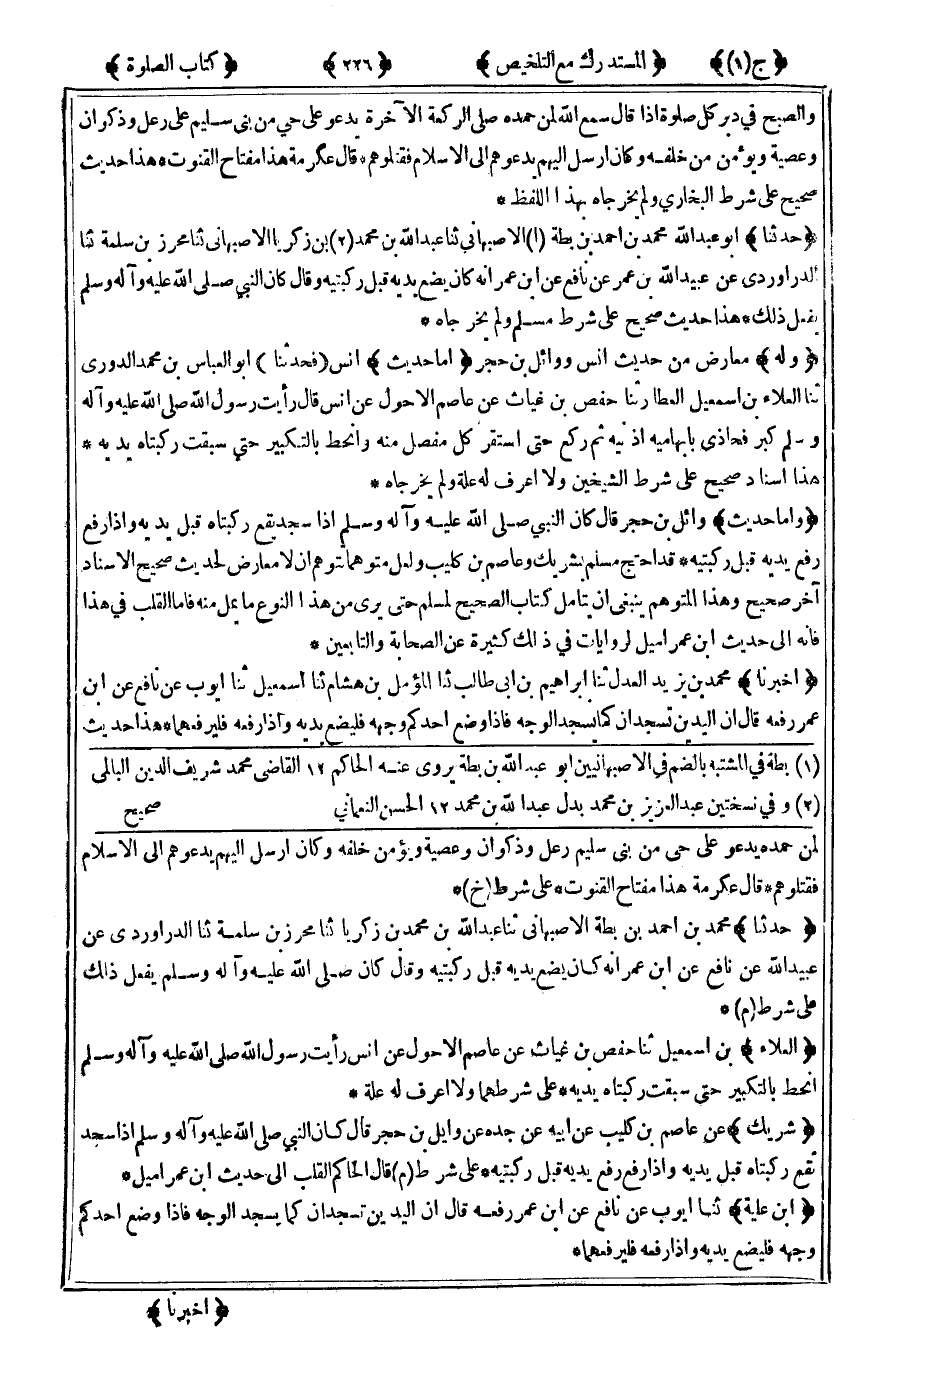 ﴿ ج(١) ﴾ ﴿ المستدرك مع التلخيص ﴾ ﴿ ٢٢٦ ﴾ ﴿ كتاب الصلوة ﴾
والصبح في دبر كل صلوة اذا قال سمع الله لمن حمده صلى الركعة الآخرة يدعو على حي من بنى سليم على رعل وذكران
وعصية ويؤمن من خلفه وكان ارسل اليهم يدعوهم الى الاسلام فقتلوهم * قال عكرمة هذا مفتاح القنوت * هذا حديث
صحيح على شرط البخاري ولم يخرجاه بهذا اللفظ *
﴿ حدثنا ﴾ ابو عبد الله محمد بن احمد بن بطة (١) الاصبهاني ثنا عبد الله بن محمد (٢) بن زكريا الاصبهانى ثنا محرز بن سلمة ثنا
الدراوردى عن عبيد الله بن عمر عن نافع عن ابن عمر انه كان يضع يديه قبل ركبتيه وقال كان النبي صلى الله عليه وآله وسلم
يفعل ذلك * هذا حديث صحيح على شرط مسلم ولم يخرجاه *
﴿ وله ﴾ معارض من حديث انس ووائل بن حجر ﴿ اما حديث ﴾ انس (فحدثنا) ابو العباس بن محمد الدورى
ثنا العلاء بن اسمعيل العطار ثنا حفص بن غياث عن عاصم الاحول عن انس قال رأيت رسول الله صلى الله عليه وآله
وسلم كبر فحاذى بابهاميه اذنيه ثم ركع حتى استقر كل مفصل منه وانحط بالتكبير حتى سبقت ركبتاه يديه *
هذا اسناد صحيح على شرط الشيخين ولا اعرف له علة ولم يخرجاه *
﴿ واما حديث ﴾ وائل بن حجر قال كان النبي صلى الله عليه وآله وسلم اذا سجد يقع ركبتاه قبل يديه واذا رفع
رفع يديه قبل ركبتيه * قد احتج مسلم بشريك وعاصم بن كليب ولعل متوهما يتوهم ان لا معارض لحديث صحيح الاسناد
آخر صحيح وهذا المتوهم ينبغى ان يتامل كتاب الصحيح لمسلم حتى يرى من هذا النوع ما يمل منه فاما القلب في هذا
فانه الى حديث ابن عمر اميل لروايات في ذلك كثيرة عن الصحابة والتابعين *
﴿ اخبرنا ﴾ محمد بن يزيد العدل ثنا ابراهيم بن ابى طالب ثنا المؤمل بن هشام ثنا اسمعيل ثنا ايوب عن نافع عن ابن
عمر رفعه قال ان اليدين تسجدان كما يسجد الوجه فاذا وضع احدكم وجهه فليضع يديه واذا رفعه فليرفعهما * هذا حديث
(١) بطة في المشتبه بالضم في الاصبهانيين ابو عبد الله بن بطة يروى عنه الحاكم ١٢ القاضى محمد شريف الدين البالمى
(٢) وفى نسختين عبد العزيز بن محمد بدل عبد الله بن محمد ١٢ الحسن النعماني صحيح
لمن حمده يدعو على حى من بنى سليم رعل وذكوان وعصية ويؤمن خلفه وكان ارسل اليهم يدعوهم الى الاسلام
فقتلوهم * قال عكرمة هذا مفتاح القنوت * على شرط (خ) *
﴿ حدثنا ﴾ محمد بن احمد بن بطة الاصبهانى ثنا عبد الله بن محمد بن زكريا ثنا محرز بن سلمة ثنا الدراوردى عن
عبيد الله عن نافع عن ابن عمر انه كان يضع يديه قبل ركبتيه وقال كان صلى الله عليه وآله وسلم يفعل ذلك
على شرط (م) *
﴿ العلاء ﴾ بن اسمعيل ثنا حفص بن غياث عن عاصم الاحول عن انس رأيت رسول الله صلى الله عليه وآله وسلم
انحط بالتكبير حتى سبقت ركبتاه يديه * على شرطهما ولا اعرف له علة *
﴿ شريك ﴾ عن عاصم بن كليب عن ابيه عن جده عن وايل بن حجر قال كان النبي صلى الله عليه وآله وسلم اذا سجد
تقع ركبتاه قبل يديه واذا رفع رفع يديه قبل ركبتيه * على شرط (م) قال الحاكم القلب الى حديث ابن عمر اميل *
﴿ ابن علية ﴾ ثنا ايوب عن نافع عن ابن عمر رفعه قال ان اليدين تسجدان كما يسجد الوجه فاذا وضع احدكم
وجهه فليضع يديه واذا رفعه فليرفعهما *
﴿ اخبرنا ﴾